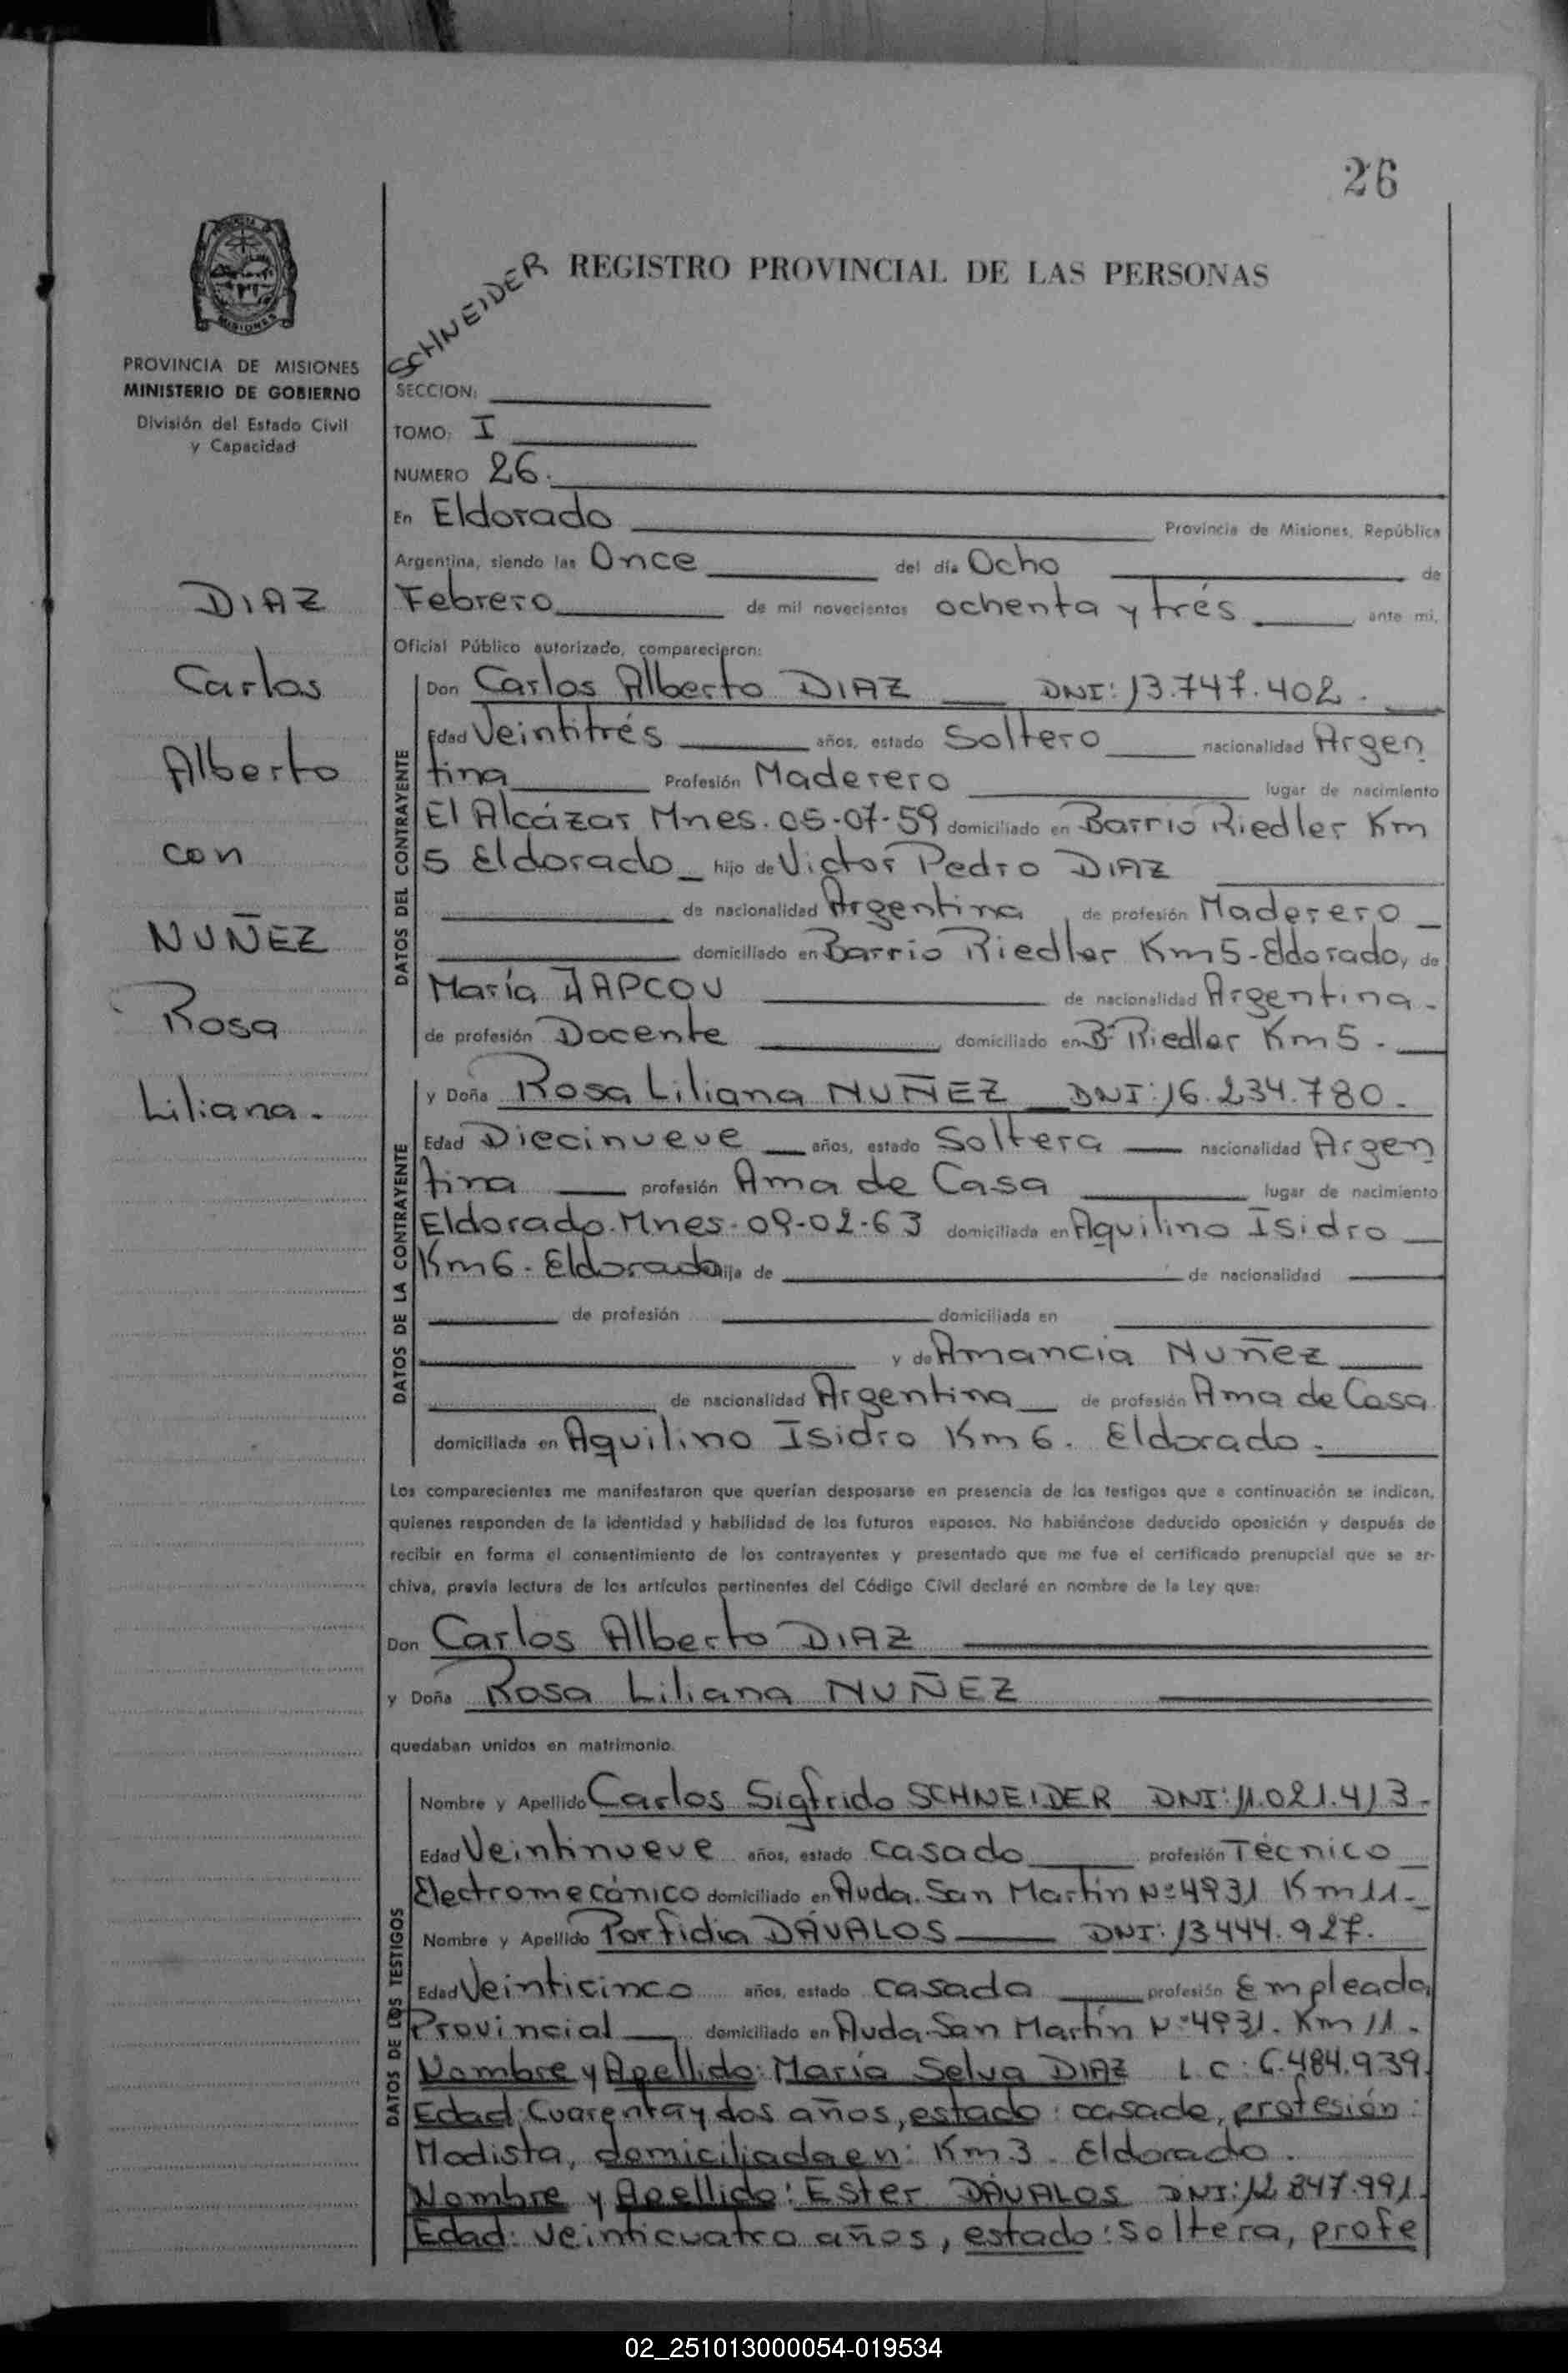 26
REGISTRO PROVINCIAL DE LAS PERSONAS
SCHNEIDER
MISIONES
PROVINCIA DE MISIONES
MINISTERIO DE GOBIERNO
División del Estado Civil
y Capacidad
DIAZ
Carlos
Alberto
con
NUÑEZ
Rosa
Liliana.
SECCION:
TOMO: I
NUMERO 26.
En Eldorado Provincia de Misiones, República
Argentina, siendo las Once del día Ocho de
Febrero de mil novecientos ochenta y trés ante mi,
Oficial Público autorizado, comparecieron:
DATOS DEL CONTRAYENTE
Don Carlos Alberto DIAZ DNI: 13.747.402.
Edad Veintitrés años, estado Soltero nacionalidad Argen
tina Profesión Maderero lugar de nacimiento
El Alcázar Mnes. 05-07-59 domiciliado en Barrio Riedler Km
5 Eldorado hijo de Victor Pedro DIAZ
de nacionalidad Argentina de profesión Maderero
domiciliado en Barrio Riedler Km5-Eldorado, de
María JAPCOU de nacionalidad Argentina.
de profesión Docente domiciliado en Bº Riedler Km5.
DATOS DE LA CONTRAYENTE
y Doña Rosa Liliana NUÑEZ DNI: 16.234.780.
Edad Diecinueve años, estado Soltera nacionalidad Argen
tina profesión Ama de Casa lugar de nacimiento
Eldorado. Mnes. 09-02-63 domiciliada en Aquilino Isidro
Km6. Eldorado hija de de nacionalidad
de profesión domiciliada en
y de Amancia Nuñez
de nacionalidad Argentina de profesión Ama de Casa
domiciliada en Aquilino Isidro Km6. Eldorado.
Los comparecientes me manifestaron que querían desposarse en presencia de los testigos que a continuación se indican,
quienes responden de la identidad y habilidad de los futuros esposos. No habiéndose deducido oposición y después de
recibir en forma el consentimiento de los contrayentes y presentado que me fue el certificado prenupcial que se ar-
chiva, previa lectura de los artículos pertinentes del Código Civil declaré en nombre de la Ley que:
Don Carlos Alberto DIAZ
y Doña Rosa Liliana NUÑEZ
quedaban unidos en matrimonio.
DATOS DE LOS TESTIGOS
Nombre y Apellido Carlos Sigfrido SCHNEIDER DNI: 11.021.413.
Edad Veintinueve años, estado casado profesión Técnico
Electromecánico domiciliado en Avda. San Martín Nº 4931 Km 11.
Nombre y Apellido Porfidia DÁVALOS DNI: 13.444.927.
Edad Veinticinco años, estado casada profesión Empleada
Provincial domiciliado en Avda. San Martín Nº 4931. Km 11.
Nombre y Apellido: María Selva DIAZ L.C: 6.484.939.
Edad: Cuarenta y dos años, estado: casada, profesión:
Modista, domiciliada en: Km 3. Eldorado.
Nombre y Apellido: Ester DÁVALOS DNI: 12.847.991.
Edad: veinticuatro años, estado: soltera, profe
02_251013000054-019534